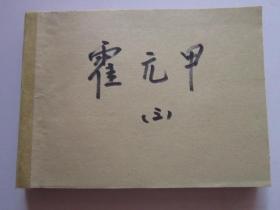 霍元甲
(三)